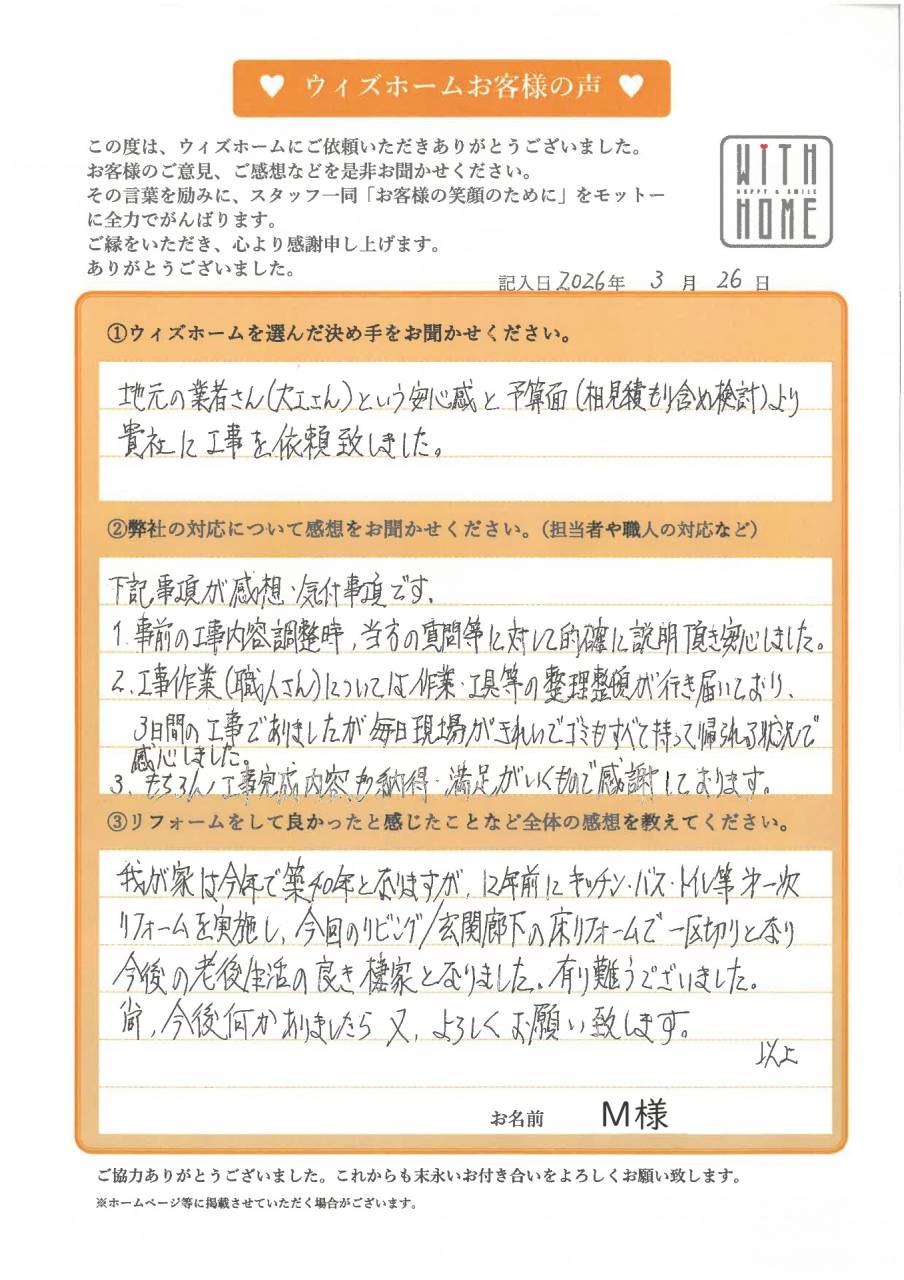 ♥ ウィズホームお客様の声 ♥
この度は、ウィズホームにご依頼いただきありがとうございました。
お客様のご意見、ご感想などを是非お聞かせください。
その言葉を励みに、スタッフ一同「お客様の笑顔のために」をモットー
に全力でがんばります。
ご縁をいただき、心より感謝申し上げます。
ありがとうございました。
WiTH
HAPPY & SMILE
HOME
記入日 2026年 3 月 26 日
①ウィズホームを選んだ決め手をお聞かせください。
地元の業者さん(大工さん)という安心感と予算面(相見積もり含め検討)より
貴社に工事を依頼致しました。
②弊社の対応について感想をお聞かせください。(担当者や職人の対応など)
下記事項が感想・気付事項です、
1. 事前の工事内容調整時、当方の質問等に対して的確に説明頂き安心しました。
2. 工事作業(職人さん)については作業・工具等の整理整頓が行き届いており、
3日間の工事でありましたが毎日現場がきれいでゴミもすべて持って帰られる状況で
感心しました。
3. もちろん工事完成内容も納得・満足がいくもので感謝しております。
③リフォームをして良かったと感じたことなど全体の感想を教えてください。
我が家は今年で築40年となりますが、12年前にキッチン・バス・トイレ等第一次
リフォームを実施し、今回のリビング/玄関廊下の床リフォームで一区切りとなり
今後の老後生活の良き棲家となりました。有り難うございました。
尚、今後何かありましたら又、よろしくお願い致します。
以上
お名前 M様
ご協力ありがとうございました。これからも末永いお付き合いをよろしくお願い致します。
※ホームページ等に掲載させていただく場合がございます。